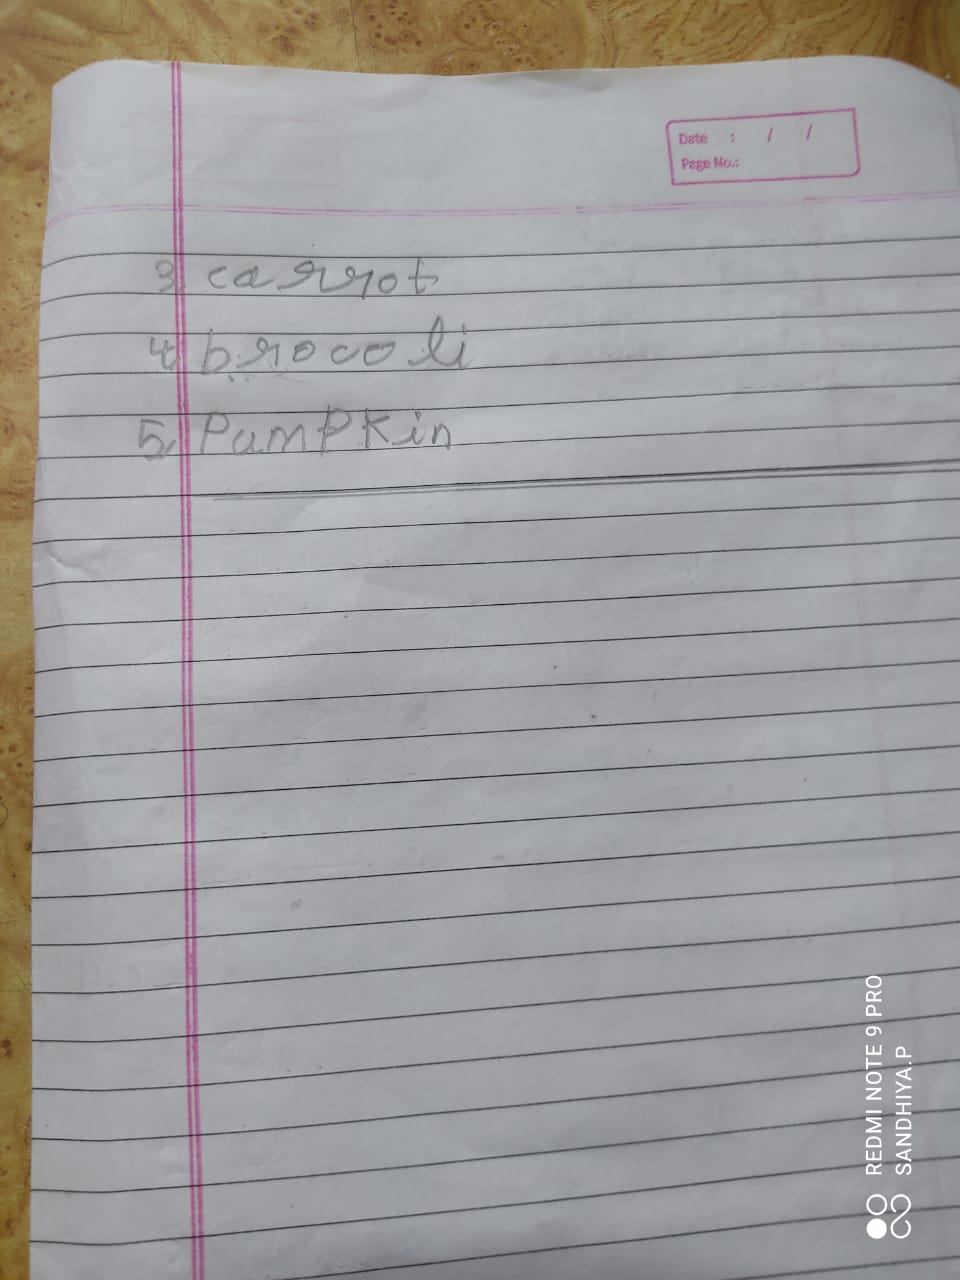 Date : / /
Page No.:
3. carrot
4. brocoli
5. Pumpkin
REDMI NOTE 9 PRO
SANDHIYA.P